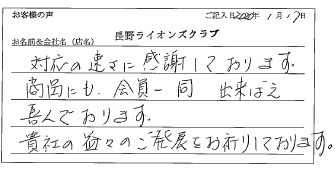 お客様の声
ご記入日2020年1月17日
お名前&会社名(店名) 長野ライオンズクラブ
対応の速さに感謝しております。
商品にも、会員一同 出来ばえ
喜んでおります。
貴社の益々のご発展をお祈りしております。